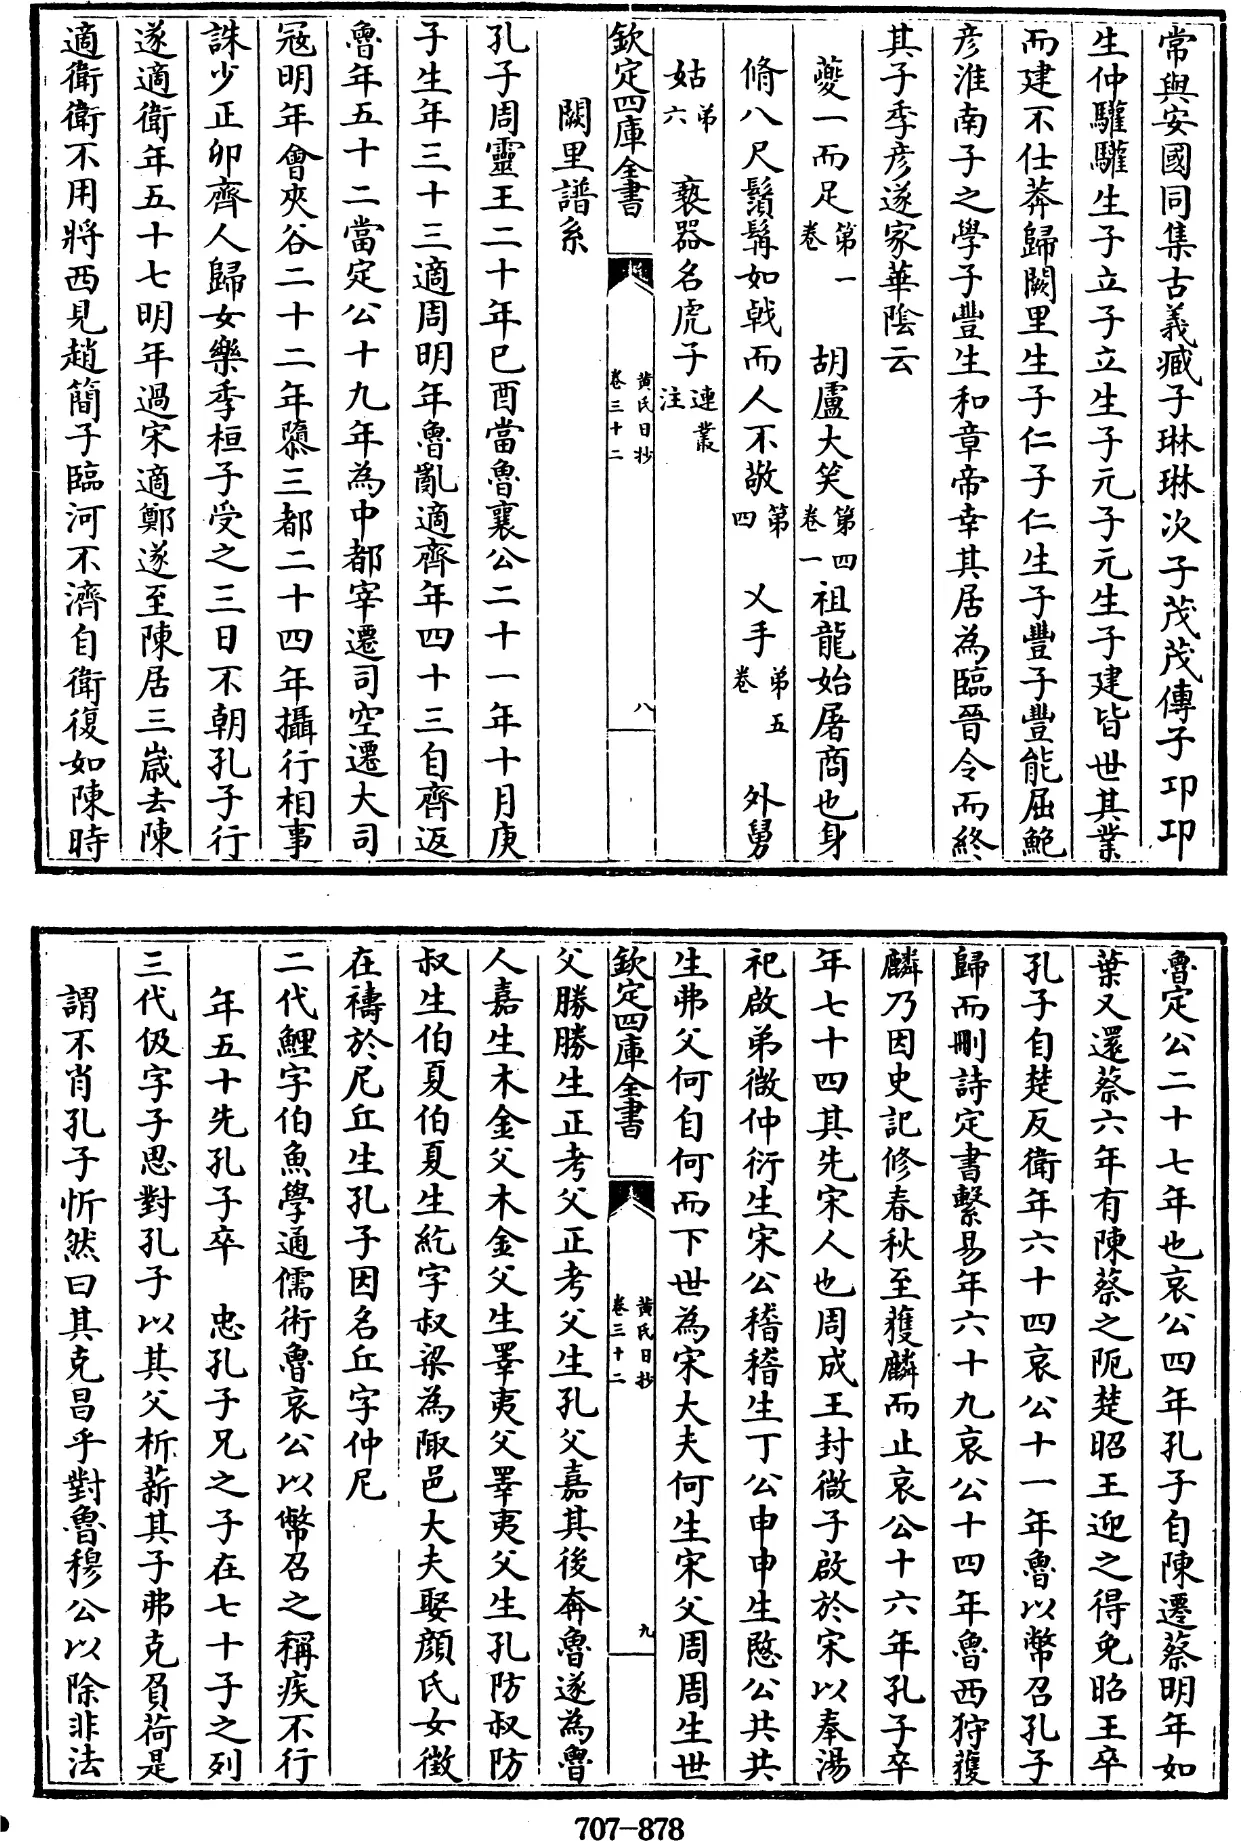 常與安國同集古義臧子琳琳次子茂茂傳子卭卭
生仲驩驩生子立子立生子元子元生子建皆世其業
而建不仕莽歸闕里生子仁子仁生子豐子豐能屈鮑
彦淮南子之學子豐生和章帝幸其居為臨晉令而終
其子季彦遂家華陰云
夔一而足第一卷 胡盧大笑第四卷一祖龍始屠商也身
脩八尺鬚髯如戟而人不敬第四 乂手第五卷 外舅
姑弟六 褻器名虎子連叢注
欽定四庫全書 黄氏日抄卷三十二 八
闕里譜系
孔子周靈王二十年已酉當魯襄公二十一年十月庚
子生年三十三適周明年魯亂適齊年四十三自齊返
魯年五十二當定公十九年為中都宰遷司空遷大司
寇明年會夾谷二十二年隳三都二十四年攝行相事
誅少正卯齊人歸女樂季桓子受之三日不朝孔子行
遂適衛年五十七明年過宋適鄭遂至陳居三歲去陳
適衛衛不用將西見趙簡子臨河不濟自衛復如陳時
魯定公二十七年也哀公四年孔子自陳遷蔡明年如
葉又還蔡六年有陳蔡之阨楚昭王迎之得免昭王卒
孔子自楚反衛年六十四哀公十一年魯以幣召孔子
歸而刪詩定書繫易年六十九哀公十四年魯西狩獲
麟乃因史記修春秋至獲麟而止哀公十六年孔子卒
年七十四其先宋人也周成王封微子啟於宋以奉湯
祀啟弟微仲衍生宋公稽稽生丁公申申生愍公共共
生弗父何自何而下世為宋大夫何生宋父周周生世
欽定四庫全書 黄氏日抄卷三十二 九
父勝勝生正考父正考父生孔父嘉其後奔魯遂為魯
人嘉生木金父木金父生睪夷父睪夷父生孔防叔防
叔生伯夏伯夏生紇字叔梁為陬邑大夫娶顔氏女徵
在禱於尼丘生孔子因名丘字仲尼
二代鯉字伯魚學通儒術魯哀公以幣召之稱疾不行
年五十先孔子卒 忠孔子兄之子在七十子之列
三代伋字子思對孔子以其父析薪其子弗克負荷是
謂不肖孔子忻然曰其克昌乎對魯穆公以除非法
707-878